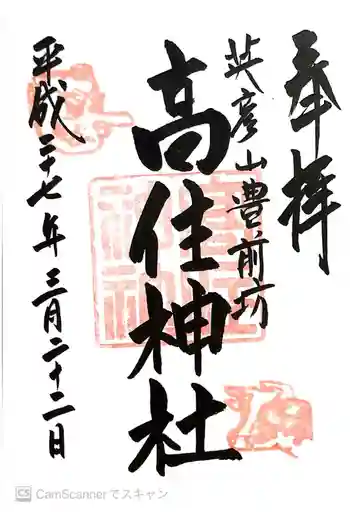 奉拝
英彦山豊前坊
高住神社
平成二十七年三月二十二日
CS CamScannerでスキャン